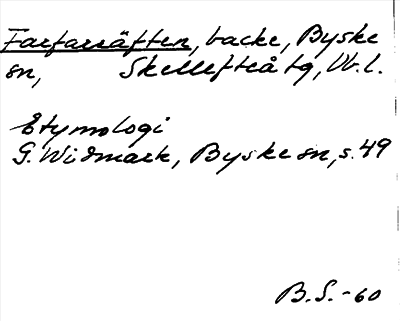 Farfarräften, backe, Byske
sn, Skellefteå tg, Vb. l.
Etymologi
G. Widmark, Byske sn, s. 49
B.S.-60